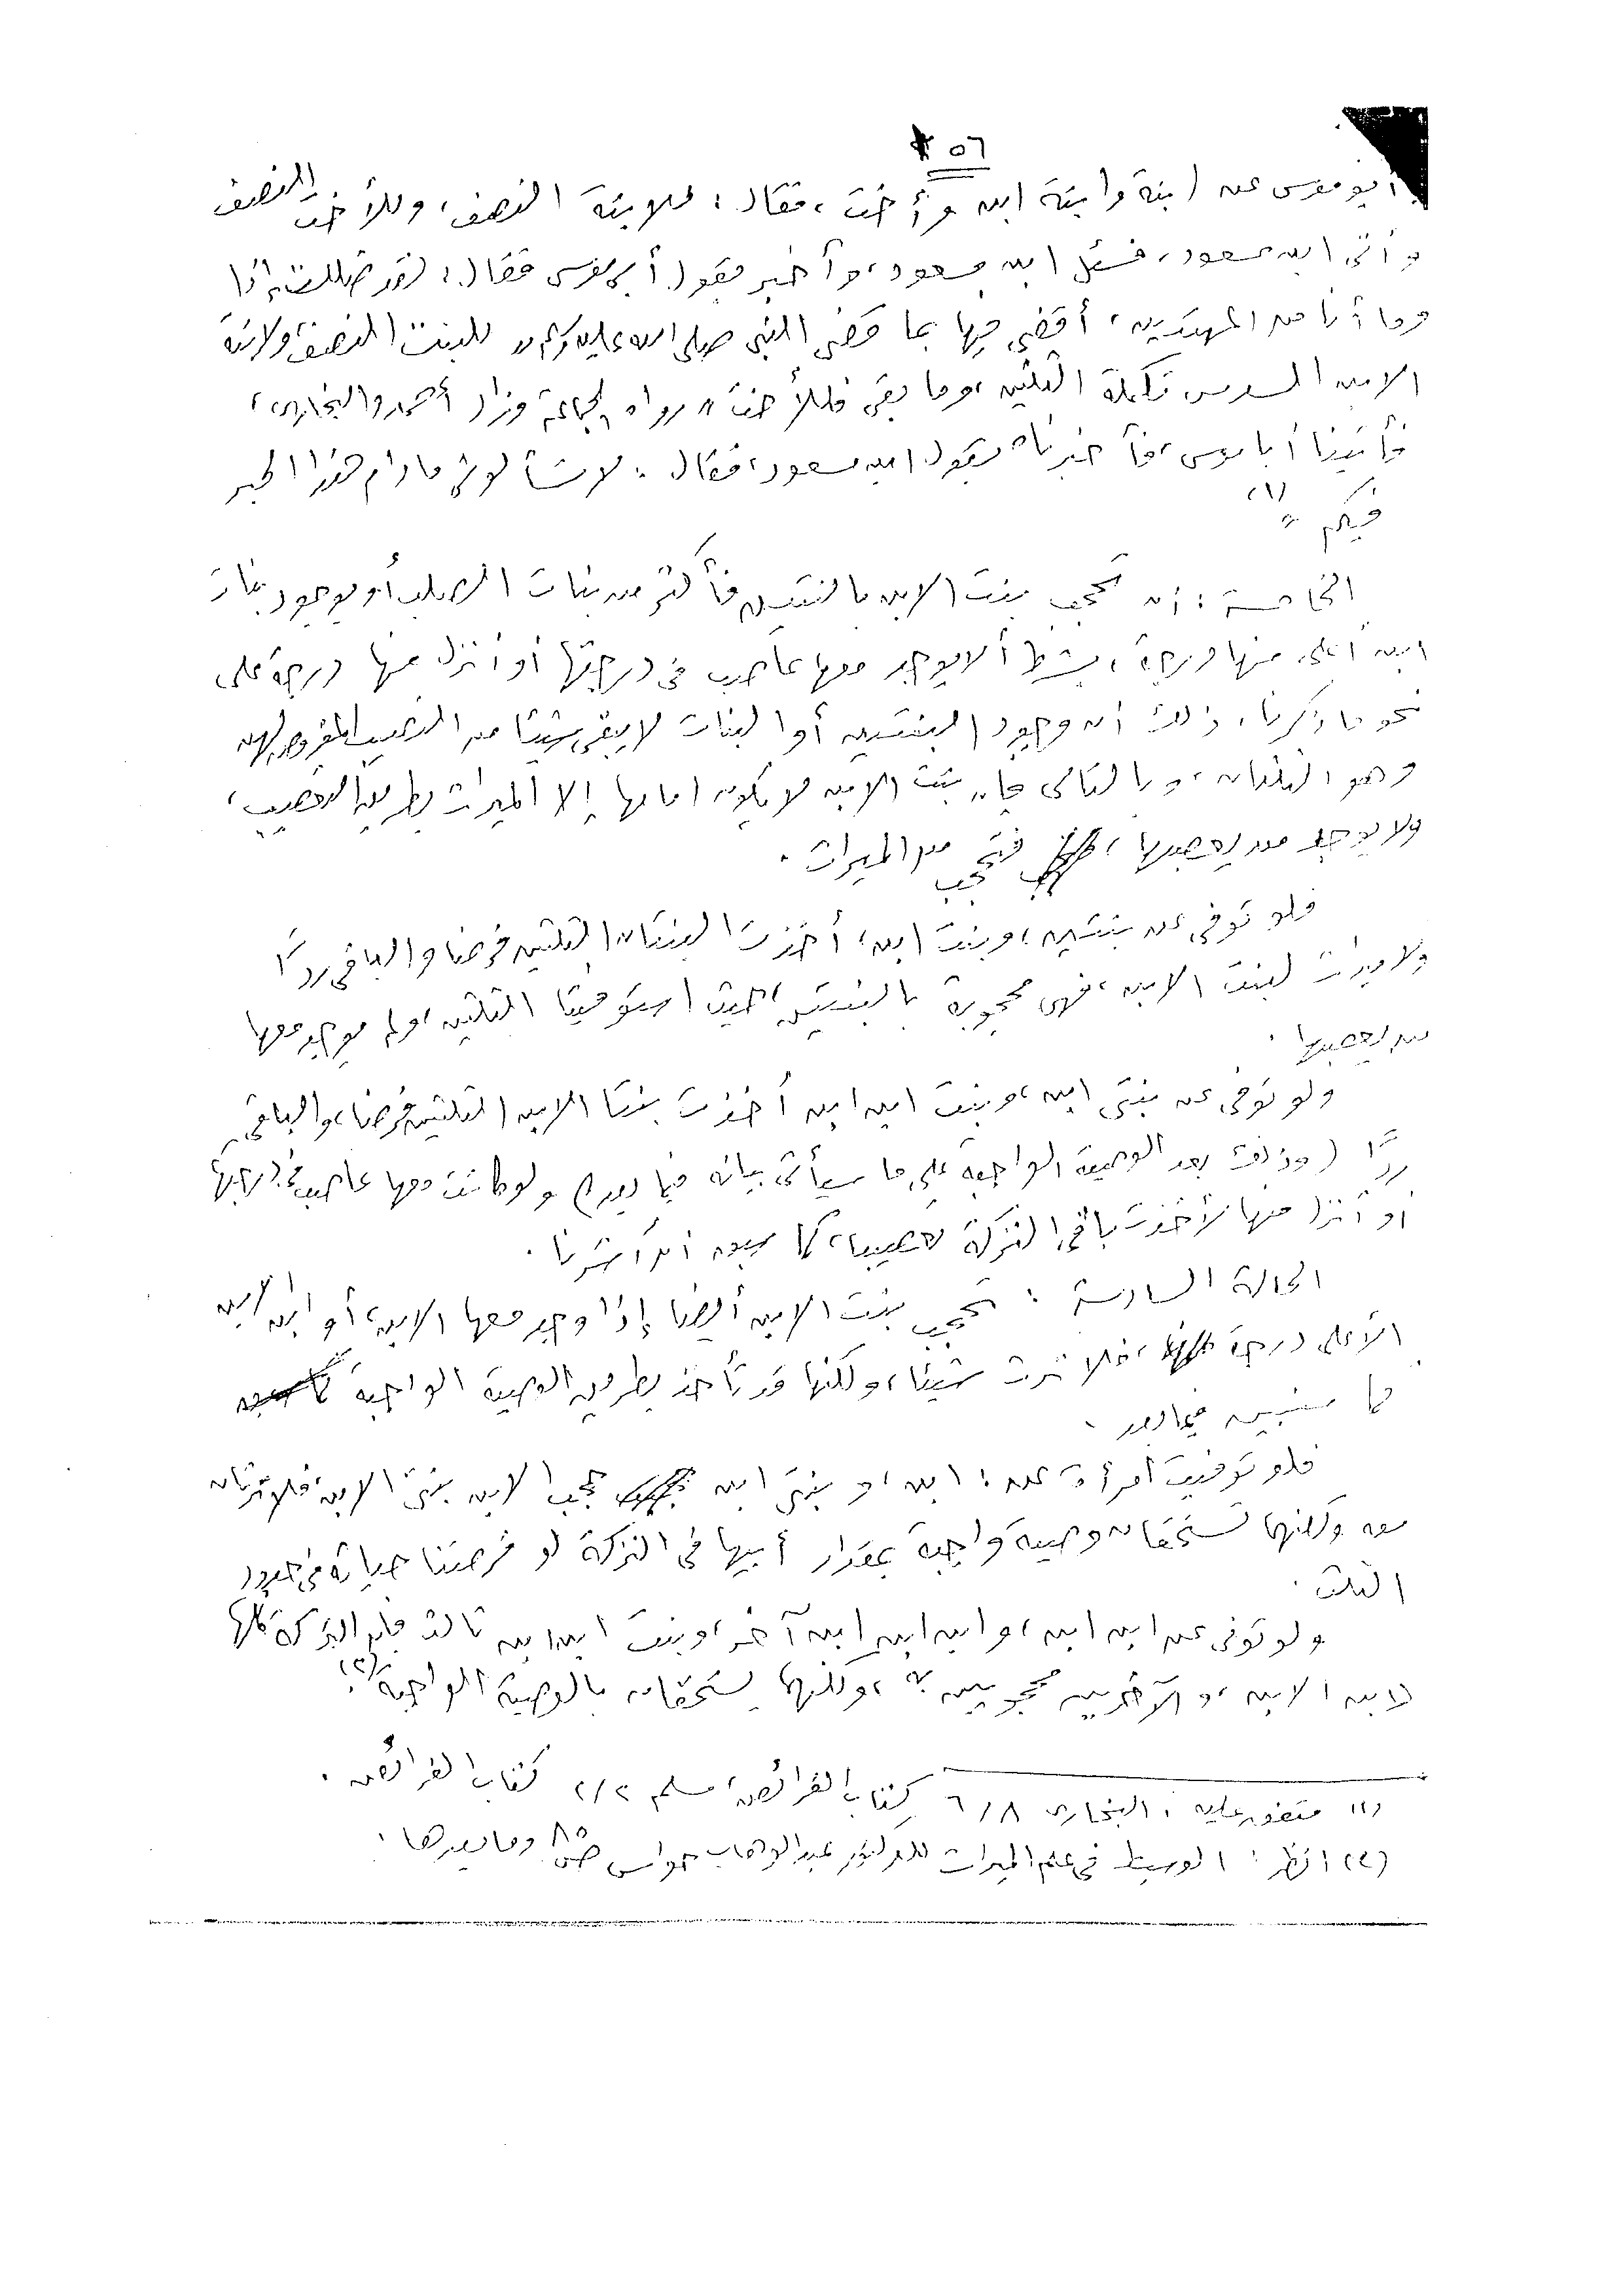 ٥٦
أبو موسى عن ابنة وابنة ابن وأخت، فقال: للابنة النصف، وللأخت النصف
وأتى ابن مسعود، فسئل ابن مسعود، وأخبر بقول أبى موسى فقال: لقد ضللت إذا
وما أنا من المهتدين، أقضى فيها بما قضى النبى صلى الله عليه وسلم " للبنت النصف، ولابنة
الابن السدس تكملة الثلثين، وما بقى فللأخت " رواه الجماعة وزاد أحمد والبخارى،
فأتينا أبا موسى، فأخبرناه بقول ابن مسعود، فقال: لا تسألونى ما دام هذا الحبر
فيكم " (١)
الخامسة: أن تحجب بنت الابن بالبنتين فأكثر من بنات الصلب أو بوجود بنات
ابن أعلى منها درجة، بشرط ألا يوجد معها عاصب فى درجتها أو أنزل منها درجة على
نحو ما ذكرنا، ذلك أن وجود البنتين أو البنات لا يبقى شيئا من النصيب المفروض لهن
وهو الثلثان، وبالتالى فإن بنت الابن لا يكون امامها إلا الميراث بطريق التعصيب،
ولا يوجد من يعصبها، فتحجب من الميراث.
فلو توفى عن بنتين، وبنت ابن، أخذت البنتان الثلثين فرضا والباقى ردًا
ولا ميراث لبنت الابن، فهى محجوبة بالبنتين، حيث استوفيتا الثلثين، ولم يوجد معها
من يعصبها.
ولو توفى عن بنتى ابن، وبنت ابن ابن أخذت بنتا الابن الثلثين فرضا، والباقى
ردًا (وذلك بعد الوصية الواجبة على ما سيأتى بيانه فيما بعد) ولو كانت معها عاصب فى درجتها
أو أنزل منها لأخذت باقى التركة تعصيبا، كما سبق أن أشرنا.
الحالة السادسة: تحجب بنت الابن أيضا إذا وجد معها الابن، أو ابن الابن
الأعلى درجة منها، فلا ترث شيئا، ولكنها قد تأخذ بطريق الوصية الواجبة
كما سنبين فيما بعد.
فلو توفيت امرأة عن: ابن، وبنتى ابن يحجب الابن بنتى الابن، فلا ترثان
معه ولكنهما تستحقان وصية واجبة بمقدار أبيها فى التركة لو فرضنا حياته فى حدود
الثلث.
ولو توفى عن ابن ابن، وابن ابن ابن آخر، وبنت ابن ابن ثالث فإن التركة كلها
لابن الابن، والآخرين محجوبين به، ولكنهما يستحقان بالوصية الواجبة (٢).
(١) متفق عليه، البخارى ٦/٨ كتاب الفرائض، مسلم ٢/٢ كتاب الفرائض.
(٢) انظر: الوسيط فى علم الميراث للدكتور عبد الوهاب حواس ص ٨٥ وما بعدها.